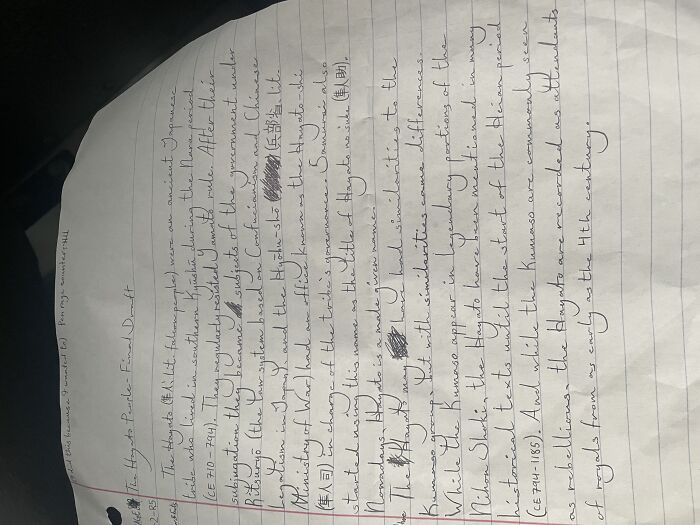 did this because I wanted to) Pen rage counter: HHL
The Hayato People - Final Draft
The Hayato (隼人 lit. falcon people) were an ancient Japanese
tribe who lived in southern Kyūshū during the Nara period
(CE 710-794). They regularly resisted Yamato rule. After their
subjugation they became subjects of the government under
Ritsuryō (the law system based on Confucianism and Chinese
Legalism in Japan), and the Hyōbu-shō (兵部省 lit.
Ministry of War) had an office known as the Hayato-shi
(隼人司) in charge of the tribe's governance. Samurai also
started using this name as the title of Hayato no suke (隼人助).
Nowadays, Hayato is a male given name.
The Hayato may have had similarities to the
Kumaso group, but with similarities came differences.
While the Kumaso appear in legendary portions of the
Nihon Shoki, the Hayato have been mentioned in many
historical texts until the start of the Heian period
(CE 794-1185). And while the Kumaso are commonly seen
as rebellious, the Hayato are recorded as attendants
of royals from as early as the 4th century.